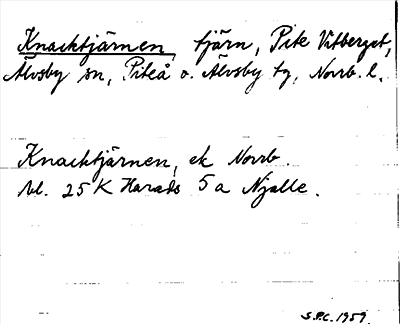 Knacktjärnen, tjärn, Pite Vitberget,
Älvsby sn, Piteå o. Älvsby tg, Norrb. l.
Knacktjärnen, ek Norrb.
bl. 25 K Harads 5 a Njalle.
S.P.C. 1959.